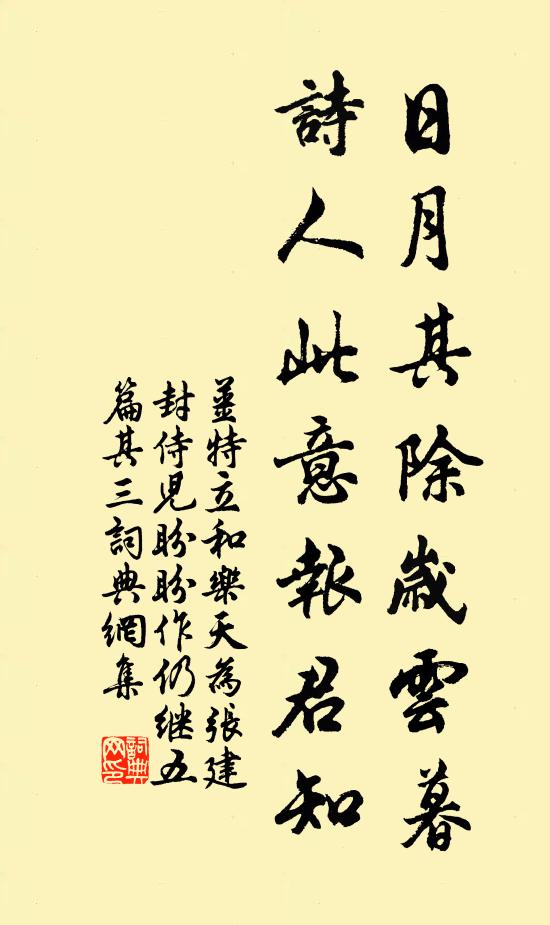 日月其除歲雲暮
詩人此意報君知
姜特立和樂天為張建
封侍兒盼盼作仍継五
篇其三詞典網集
詞典
网印